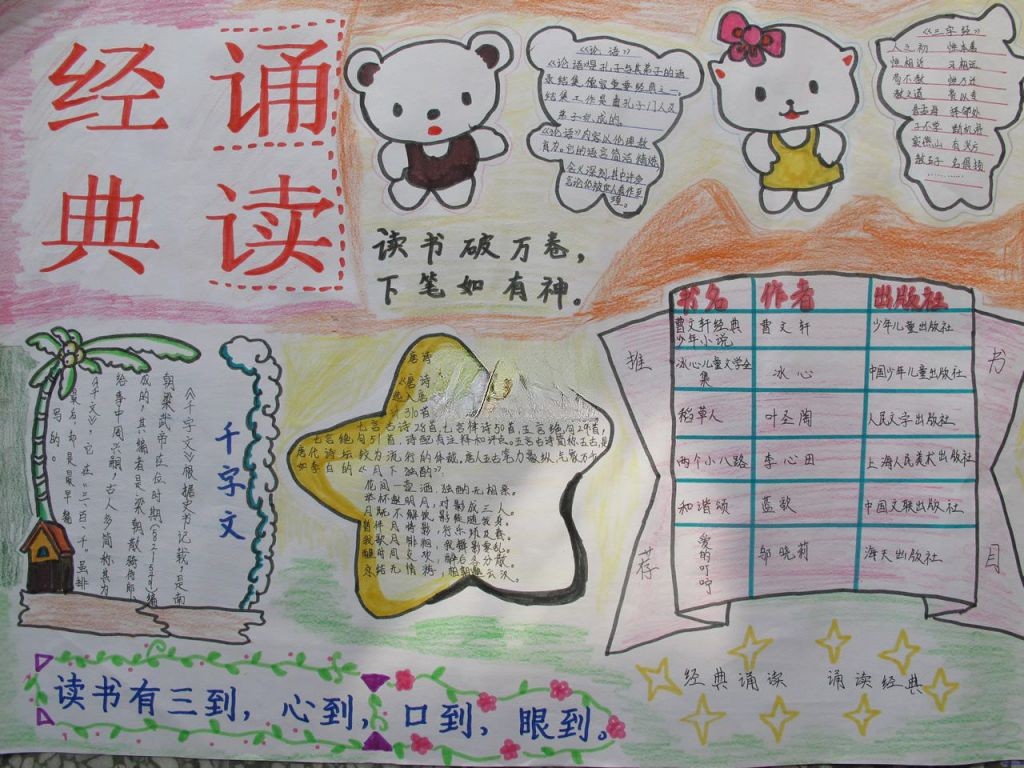 经诵
典读
《论语》
《论语》是孔子与其弟子的语
录结集,儒家重要经典之一,
结集工作是由孔子门人及
弟子完成的。
《论语》内容以伦理教
育为。它的语言简洁精炼
含义深刻,其中许多
言论仍被世人视作至
理。
《三字经》
人之初 性本善
性相近 习相远
苟不教 性乃迁
教之道 贵以专
昔孟母 择邻处
子不学 断机杼
窦燕山 有义方
教五子 名俱扬
读书破万卷,
下笔如有神。
千字文
《千字文》根据史书记载,是南
朝梁武帝在位时期
成的,其编者是梁朝散骑侍郎
给事中周兴嗣,古人多简称其为
《千文》,它在"三、百、千"虽排
最后,却是最早编
写的。
唐诗
《唐诗
310首
七言古诗28首,七言律诗50首,五言绝句29首,
七言绝句51首,诗配有注释和评点。五言古诗简称五古,是
唐代诗坛较为流行的体裁,唐人五古笔力豪纵,气象万千
如李白的《月下独酌》。
花间一壶酒,独酌无相亲。
举杯邀明月,对影成三人。
月既不解饮,影徒随我身。
暂伴月将影,行乐须及春。
我歌月徘徊,我舞影零乱。
醒时同交欢,醉后各分散。
永结无情游,相期邈云汉。
推荐
书目
书名 作者 出版社
曹文轩经典少年小说 曹文轩 少年儿童出版社
冰心儿童文学全集 冰心 中国少年儿童出版社
稻草人 叶圣陶 人民文学出版社
两个小八路 李心田 上海人民美术出版社
和谐颂 蓝歌 中国文联出版社
爱的叮咛 邬晓莉 海天出版社
读书有三到,心到,口到,眼到。
经典诵读 诵读经典